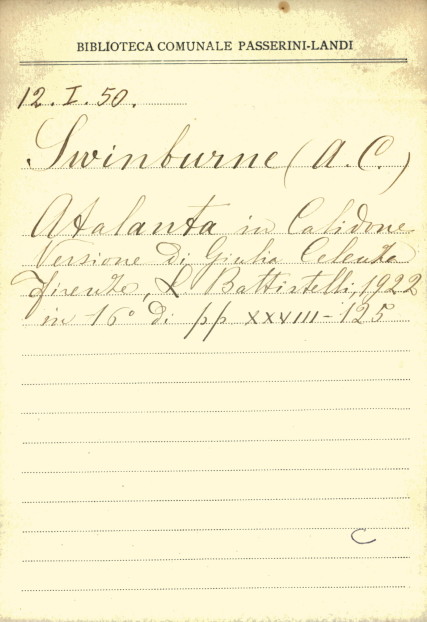 BIBLIOTECA COMUNALE PASSERINI-LANDI
12. I. 50.
Swinburne (A. C.)
Atalanta in Calidone
Versione di Giulia Celenza
Firenze, L. Battistelli, 1922
in -16° di pp XXXIII - 125
C